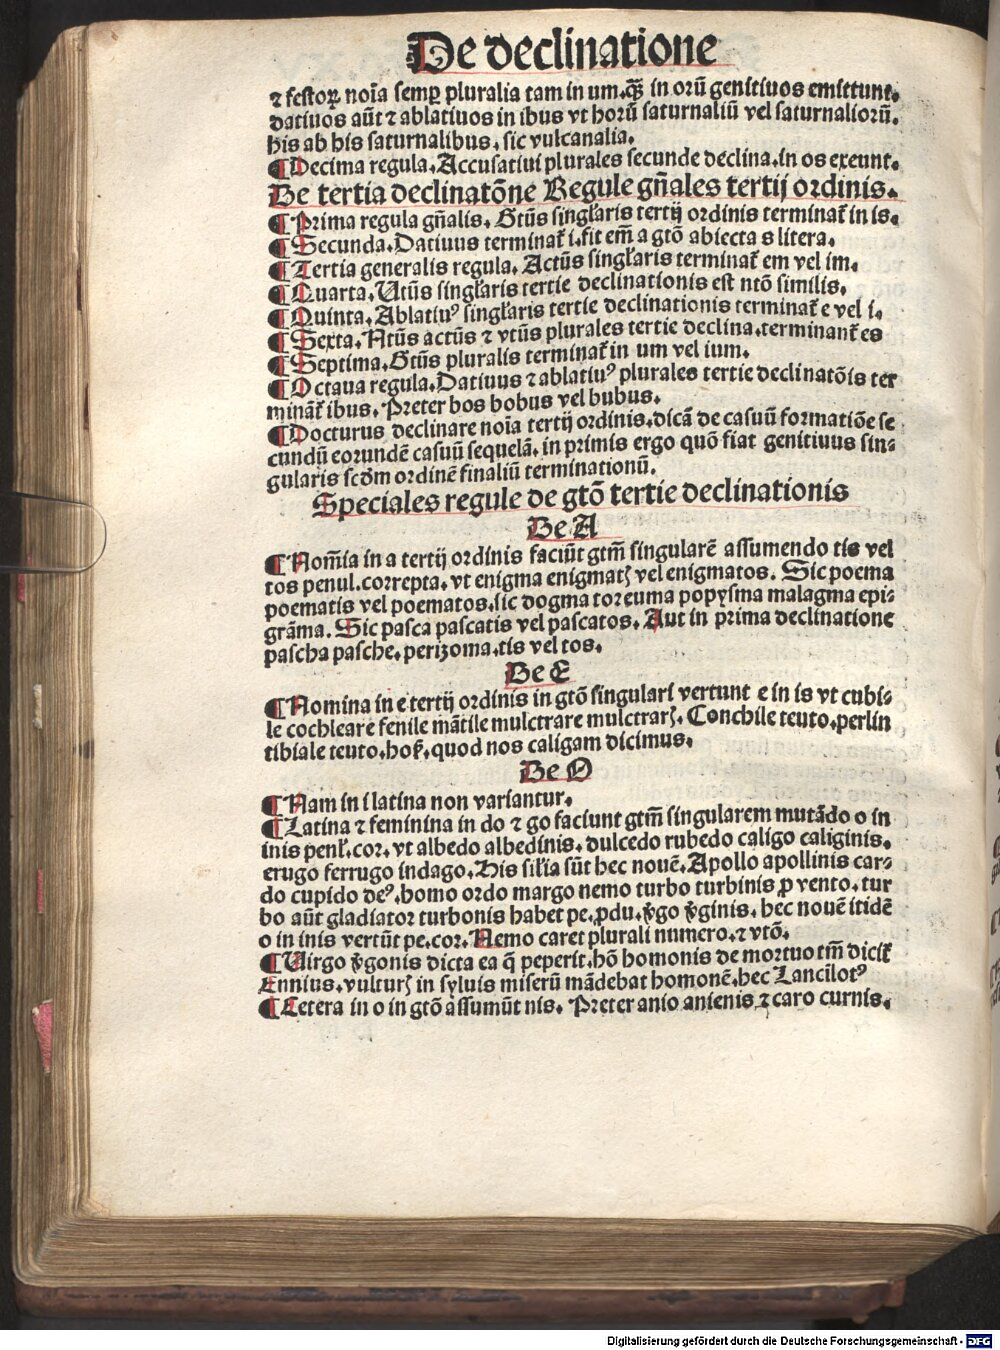 De declinatione
⁊ festoꝝ noīa semꝑ pluralia tam in um.qͣꝫ in orū genitiuos emittunt.
datiuos aūt ⁊ ablatiuos in ibus vt horū saturnaliū vel saturnaliorū.
his ab his saturnalibus. sic vulcanalia.
¶Decima regula. Accusatiui plurales secunde declina.in os exeunt.
De tertia declinatōne Regule gn̄ales tertij ordinis.
¶Prima regula gn̄alis. Gtūs singl̄aris tertij ordinis terminat̄ in is.
¶Secunda.Datiuus terminat̄ i.fit em̄ a gtō abiecta s litera.
¶Tertia generalis regula. Actūs singl̄aris terminat̄ em vel im.
¶Quarta.Vtūs singl̄aris tertie declinationis est ntō similis.
¶Quinta.Ablatiuꝰ singl̄aris tertie declinationis terminat̄ e vel i.
¶Sexta.Ntūs actūs ⁊ vtūs plurales tertie declina.terminant̄ es
¶Septima.Gtūs pluralis terminat̄ in um vel ium.
¶Octaua regula.Datiuus ⁊ ablatiuꝰ plurales tertie declinatōis ter
mināt̄ ibus. Preter bos bobus vel bubus.
¶Docturus declinare noīa tertij ordinis.dicā de casuū formatiōe se
cundū eorundē casuū sequelā.in primis ergo quō fiat genitiuus sin⸗
gularis scd̄m ordinē finaliū terminationū.
Speciales regule de gtō tertie declinationis
De A
¶Nom̄ia in a tertij ordinis faciūt gtm̄ singularē assumendo tis vel
tos penul.correpta. vt enigma enigmatꝭ vel enigmatos. Sic poema
poematis vel poematos.sic dogma toreuma popysma malagma epi⸗
grāma. Sic pasca pascatis vel pascatos. Aut in prima declinatione
pascha pasche. perizoma.tis vel tos.
De E
¶Nomina in e tertij ordinis in gtō singulari vertunt e in is vt cubi⸗
le cochleare fenile mātile mulctrare mulctrarꝭ. Conchile teuto.perlin
tibiale teuto.hoß.quod nos caligam dicimus.
De O
¶Nam in i latina non variantur.
¶Latina ⁊ feminina in do ⁊ go faciunt gtm̄ singularem mutādo o in
inis penl̄.cor. vt albedo albedinis. dulcedo rubedo caligo caliginis.
erugo ferrugo indago. His sil̄ia sūt hec nouē. Apollo apollinis car⸗
do cupido deꝰ.homo ordo margo nemo turbo turbinis ꝓ vento. tur
bo aūt gladiator turbonis habet pe.ꝓdu. v̄go v̄ginis. hec nouē itidē
o in inis vertūt pe.cor. Nemo caret plurali numero.⁊ vtō.
¶Virgo v̄gonis dicta ea q̄ peperit.hō homonis de mortuo tm̄ dicit̄
Ennius.vulturꝭ in syluis miserū mādebat homonē.hec Lancilotꝰ
¶Cetera in o in gtō assumūt nis. Preter anio anienis ⁊ caro curnis.
Digitalisierung gefördert durch die Deutsche Forschungsgemeinschaft - DFG